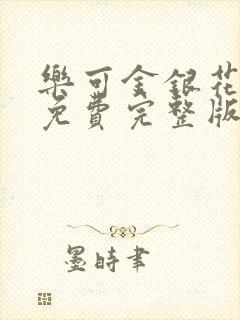 樂可金銀花
免費完整版
墨時書